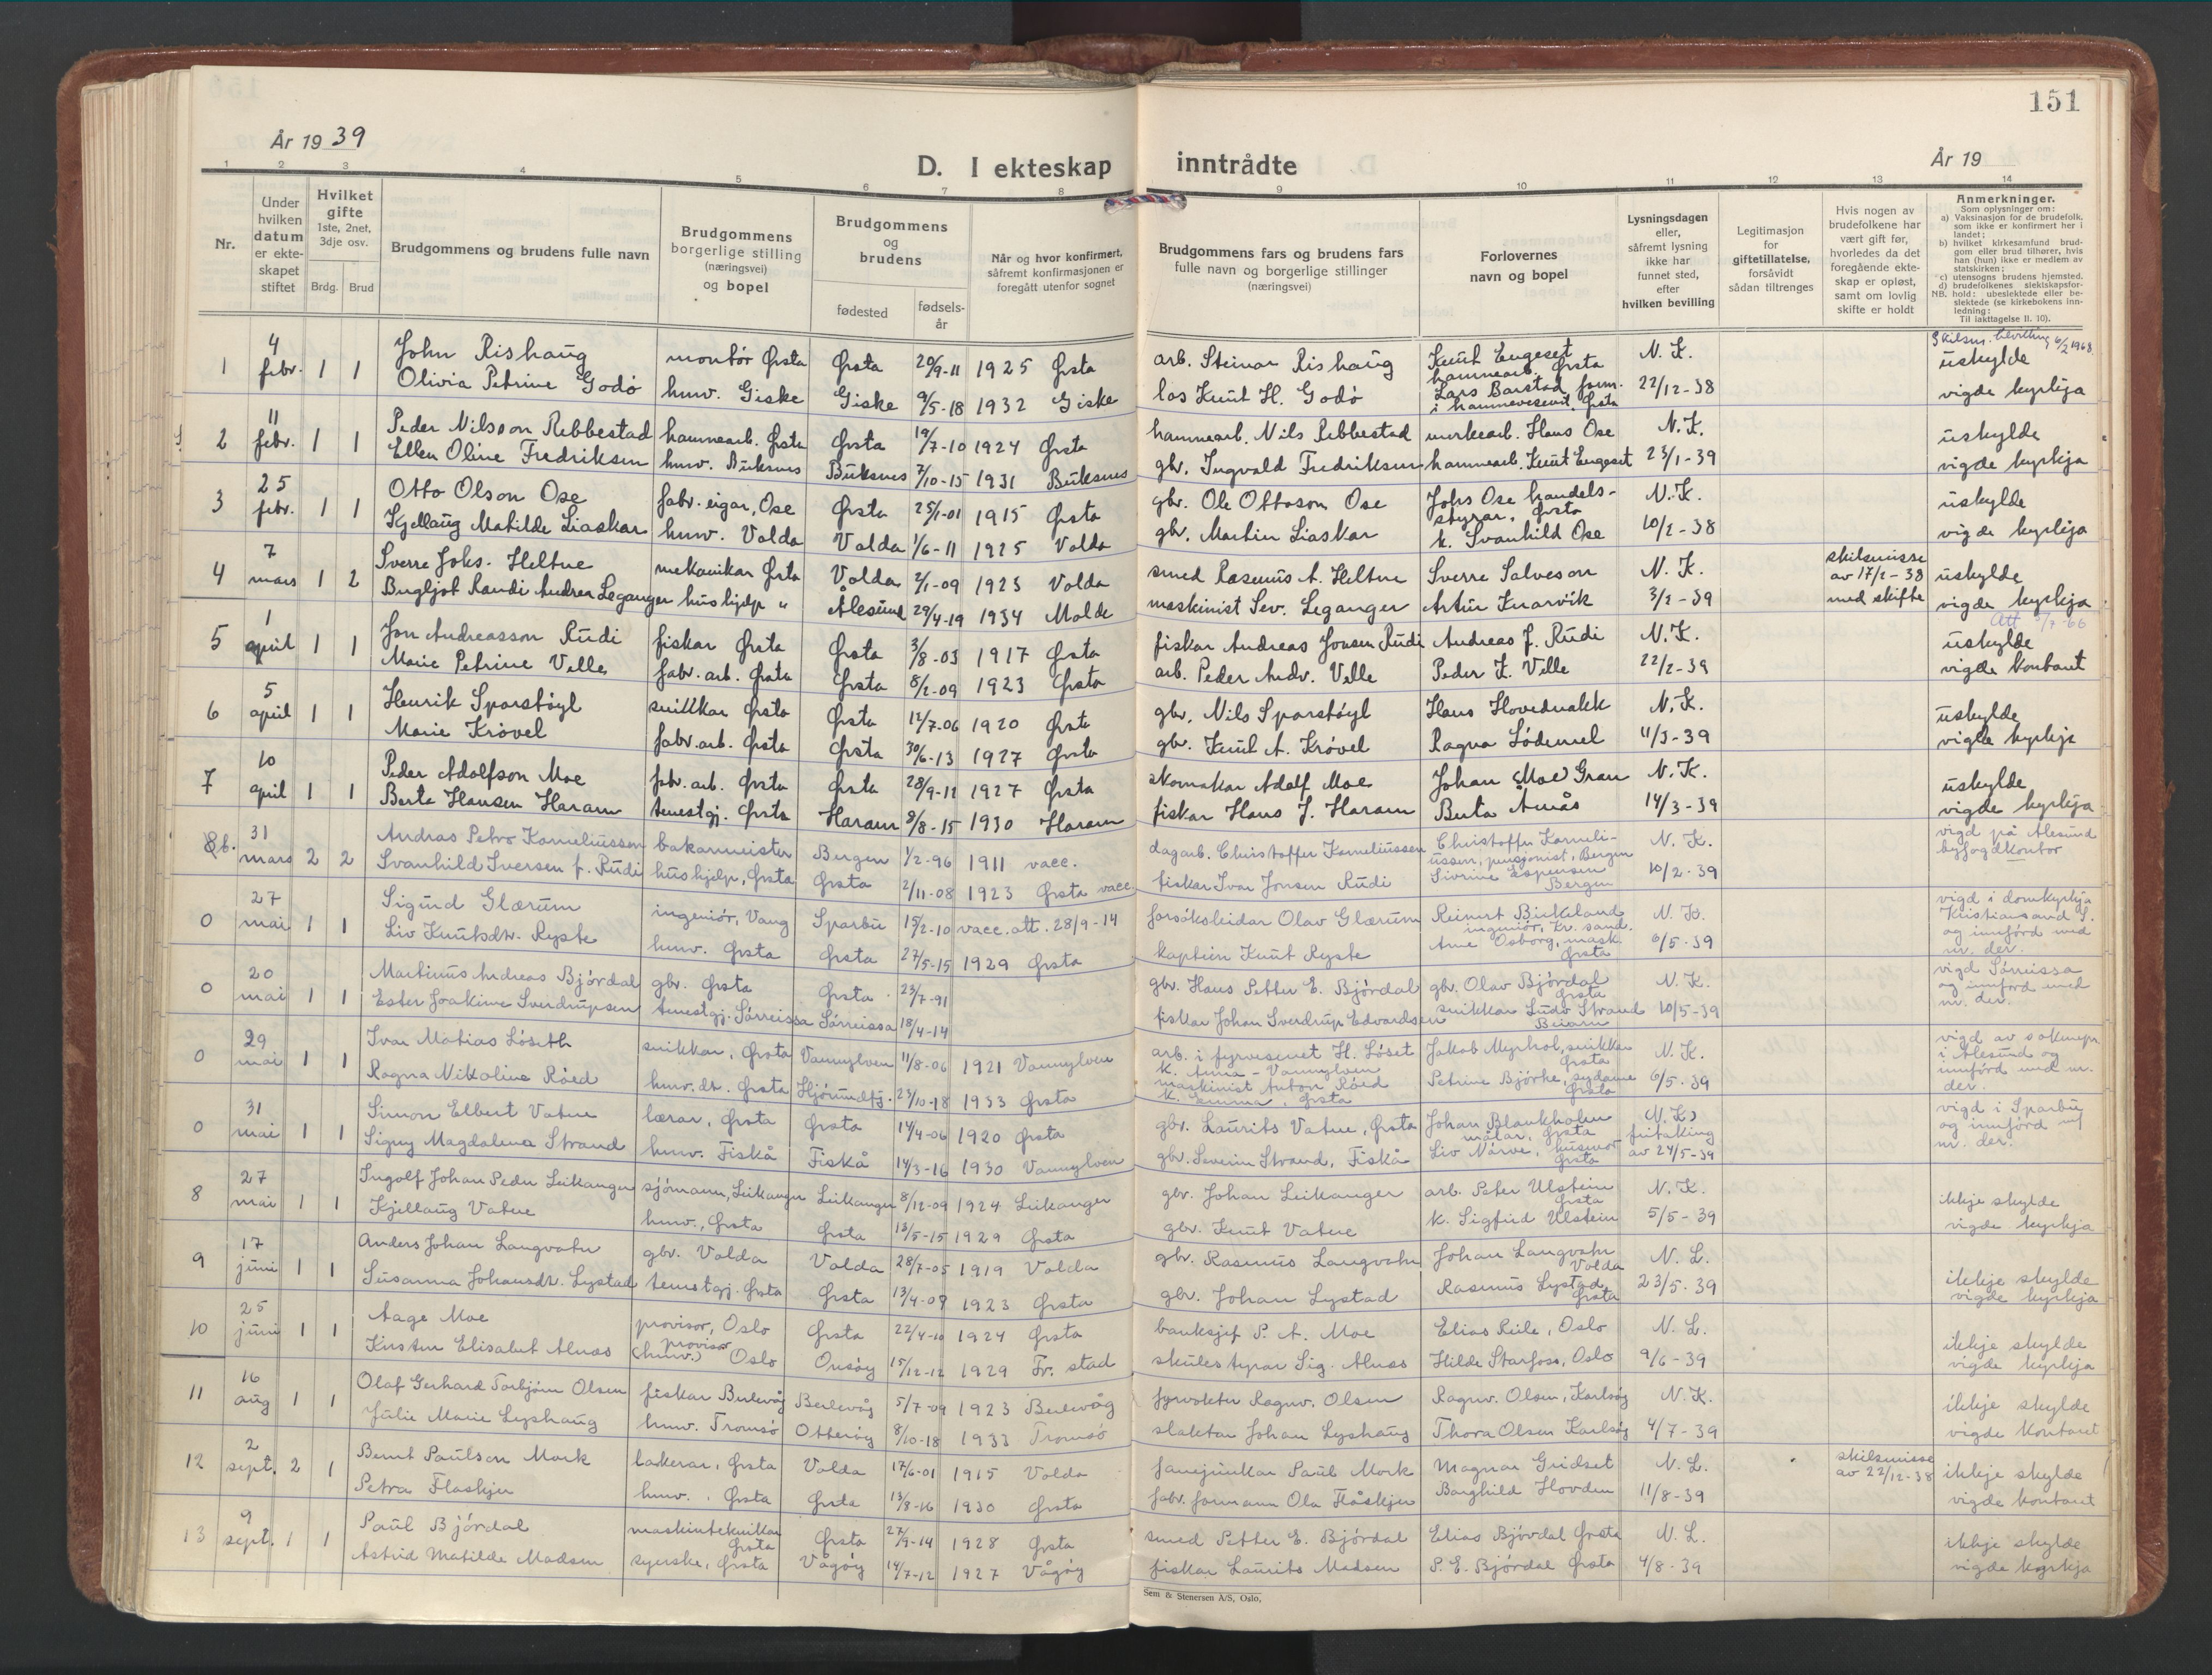 151
År 1939
D. I ekteskap inntrådte
År 19
1 2 3 4 5 6 7 8 9 10 11 12 13 14
Nr.
Under hvilken datum er ekteskapet stiftet
Hvilket gifte 1ste, 2net, 3dje osv.
Brdg. Brud
Brudgommens og brudens fulle navn
Brudgommens borgerlige stilling (næringsvei) og bopel
Brudgommens og brudens
fødested
fødselsår
Når og hvor konfirmert, såfremt konfirmasjonen er foregått utenfor sognet
Brudgommens fars og brudens fars fulle navn og borgerlige stillinger (næringsvei)
Forlovernes navn og bopel
Lysningsdagen eller, såfremt lysning ikke har funnet sted, efter hvilken bevilling
Legitimasjon for giftetillatelse, forsåvidt sådan tiltrenges
Hvis nogen av brudefolkene har vært gift før, hvorledes da det foregående ekteskap er opløst, samt om lovlig skifte er holdt
Anmerkninger.
Som oplysninger om:
a) Vaksinasjon for de brudefolk, som ikke er konfirmert her i landet;
b) hvilket kirkesamfund brudgom eller brud tilhører, hvis han (hun) ikke er medlem av statskirken;
c) utensogns brudens hjemsted.
d) brudefolkenes slektskapsforhold: ubeslektede eller beslektede (se kirkebokens innledning:
NB.
Til iakttagelse II. 10).
Skilsm. bevilling 6/2 1968.
1 4 febr. 1 1 John Rishaug montör Ørsta Ørsta 20/9-11 1925 Ørsta arb. Steinar Rishaug Knut Engeset hamnearb. Ørsta N. K. uskylde
Olivia Petrine Godö huv. Giske Giske 9/5-18 1932 Giske los Knut H. Godö Lars Barstad form. i hamnevesenet, Ørsta 22/12-38 vigde kyrkja
2 11 febr. 1 1 Peder Nilsson Rebbestad hamnearb. Ørsta Ørsta 19/7-10 1924 Ørsta hamnearb. Nils Rebbestad murkearb. Hans Ose N. K. uskylde
Ellen Oline Fredriksen huv. Buksnes Buksnes 7/10-15 1931 Buksnes gbr. Ingvald Fredriksen hamnearb. Knut Engeset 23/1-39 vigde kyrkja
3 25 febr. 1 1 Otto Olson Ose fabr. eigar, Ose Ørsta 25/1-01 1915 Ørsta gbr. Ole Ottoson Ose Johs Ose handelsstyrar, Ørsta N. K. uskylde
Kjellaug Matilde Liaskar huv. Volda Volda 1/6-11 1925 Volda gbr. Martin Liaskar k. Svanhild Ose 10/2-38 vigde kyrkja
4 7 mars 1 2 Sverre Johs. Heltne mekanikar Ørsta Volda 2/1-09 1923 Volda smed Rasmus A. Heltne Sverre Salveson N. K. skilsmisse av 17/2-38 med skifte uskylde
Bergljot Randi Andrea Leganger hushjelp " Ålesund 29/4-19 1934 Molde maskinist Sev. Leganger Artur Knarvik 3/2-39 vigde kyrkja
5 1 april 1 1 Jon Andreasson Rudi fiskar Ørsta Ørsta 3/8-03 1917 Ørsta fiskar Andreas Jonsen Rudi Andreas J. Rudi N. K. uskylde
Marie Petrine Velle fabr. arb. Ørsta Ørsta 8/2-09 1923 Ørsta arb. Peder Andr. Velle Peder K. Velle 22/2-39 vigde kontoret
6 5 april 1 1 Henrik Sporstöyl snikkar Ørsta Ørsta 12/7-06 1920 Ørsta gbr. Nils Sporstöyl Hans Hovednakk N. K. uskylde
Marie Krövel fabr. arb. Ørsta Ørsta 30/6-13 1927 Ørsta gbr. Knut A. Krövel Ragna Lödemel 11/3-39 vigde kyrkje
7 10 april 1 1 Peder Adolfson Moe fabr. arb. Ørsta Ørsta 28/9-12 1927 Ørsta skomakar Adolf Moe Johan (Moe) Gran N. K. uskylde
Berta Hansen Haram tenestgj. Ørsta Haram 8/8-15 1930 Haram fiskar Hans J. Haram Berta Åmås 14/3-39 vigde kyrkja
31 mars 2 2 Andras Petro Korneliussen bakarmeister Bergen 1/2-96 1911 vacc. dagarb. Christoffer Korneliussen Christoffer Korneliussen, pensjonist, Bergen N. K. vigd på Alesund byfogdkontor
Svanhild Iversen f. Rudi hushjelp, Ørsta Ørsta 2/11-08 1923 Ørsta vacc. fiskar Ivar Jonsen Rudi Sivrine Espensen Bergen 10/2-39
0 27 mai 1 1 Sigurd Glærum ingeniör, Vang Sparbu 15/2-10 vacc. att. 28/9-14 forsöksleidar Olav Glærum Reinert Birkeland ingeniör, Kr. sand. N. K. vigd i domkyrkja Kristiansand S. og innförd med nr. der.
Liv Knutsdtr. Ryste huv. Ørsta Ørsta 27/5-15 1929 Ørsta kaptein Knut Ryste Arne Osborg, mask. Ørsta 6/5-39
0 20 mai 1 1 Martinus Andreas Björdal gbr. Ørsta Ørsta 23/7-91 gbr. Hans Petter E. Björdal gbr. Olav Björdal Ørsta N. K. vigd Sörreissa og innförd med nr. der.
Ester Joakime Sverdrupsen tenestgj. Sörreissa Sörreissa 18/4-14 fiskar Johan Sverdrup Edvardsen snikkar Ludv Strand 10/5-39
0 29 mai 1 1 Ivar Matias Löseth snikkar, Ørsta Vannylven 11/8-06 1921 Vannylven arb. i fyrvesenet H. Löset k. Anna - Vannylven Jakob Myrhol, snikkar Ørsta N. K. vigd av soknepr. i Alesund og innförd med nr. der.
Ragna Nikoline Röed huv. dt. Ørsta Hjörundfj. 23/10-18 1933 Ørsta maskinist Anton Röed k. Emma, Ørsta Petrine Björke, sydame Ørsta 6/5-39
0 31 mai 1 1 Simon Elbert Vatne lærar, Ørsta Ørsta 14/4-06 1920 Ørsta gbr. Laurits Vatne, Ørsta Johan Blankholm målar, Ørsta (N. K.) fritaking av 24/5-39 vigd i Sparbu og innförd m/ nr. der.
Signy Magdalena Strand huv. Fiskå Fiskå 14/3-16 1930 Vannylven gbr. Severin Strand, Fiskå Liv Nårve, husmor Ørsta
8 27 mai 1 1 Ingolf Johan Peder Leikanger sjömann, Leikanger Leikanger 8/12-09 1924 Leikanger gbr. Johan Leikanger arb. Peter Ulstein Ørsta N. K. ikkje skylde
Kjellaug Vatne huv., Ørsta Ørsta 13/5-15 1929 Ørsta gbr. Knut Vatne k. Sigfrid Ulstein 5/5-39 vigde kyrkja
9 17 juni 1 1 Anders Johan Langvatn gbr. Volda Volda 28/7-05 1919 Volda gbr. Rasmus Langvatn Johan Langvatn Volda N. L. ikkje skylde
Susanna Johansdt. Lystad tenestgj. Ørsta Ørsta 13/4-09 1923 Ørsta gbr. Johan Lystad Rasmus Lystad Ørsta 23/5-39 vigde kyrkja
10 25 juni 1 1 Aage Moe provisor, Oslo Ørsta 22/4-10 1924 Ørsta banksjef P. A. Moe Elias Reile, Oslo N. L. ikkje skylde
Kirsten Elisabet Alnæs (huv.) provisor Oslo Onsöy 15/12-12 1929 Fr. stad skulestyrar Sig. Alnæs Hilde Starfoss, Oslo 9/6-39 vigde kyrkja
11 16 aug 1 1 Olaf Gerhard Torbjörn Olsen fiskar Berlevåg Berlevåg 5/7-09 1923 Berlevåg fyrvokter Ragnv. Olsen Ragnv. Olsen, Karlsöy N. K. ikkje skylde
Julie Marie Lyshaug huv. Tromsö Otteröy 8/10-18 1933 Tromsö slaktar Johan Lyshaug Thora Olsen Karlsöy 4/7-39 vigde kontoret
12 2 sept. 2 1 Bernt Paulson Mork lakerar, Ørsta Volda 17/6-01 1915 Volda fanejunkar Paul Mork Magnar Gridset N. L. skilsmisse av 22/12-38 ikkje skylde
Petra Flaskjer huv., Ørsta Ørsta 13/8-16 1930 Ørsta fabr. formann Ola Flåskjer Borghild Hovden 11/8-39 vigde kontoret
13 9 sept. 1 1 Paul Björdal maskinteknikar Ørsta Ørsta 27/9-14 1928 Ørsta smed Petter E. Björdal Elias Björdal Ørsta N. L. ikkje skylde
Astrid Matilde Madsen syerske, Ørsta Vågöy 14/7-12 1927 Vågöy fiskar Laurits Madsen P. E. Björdal Ørsta 4/8-39 vigde kyrkja
Sem & Stenersen A/S, Oslo,